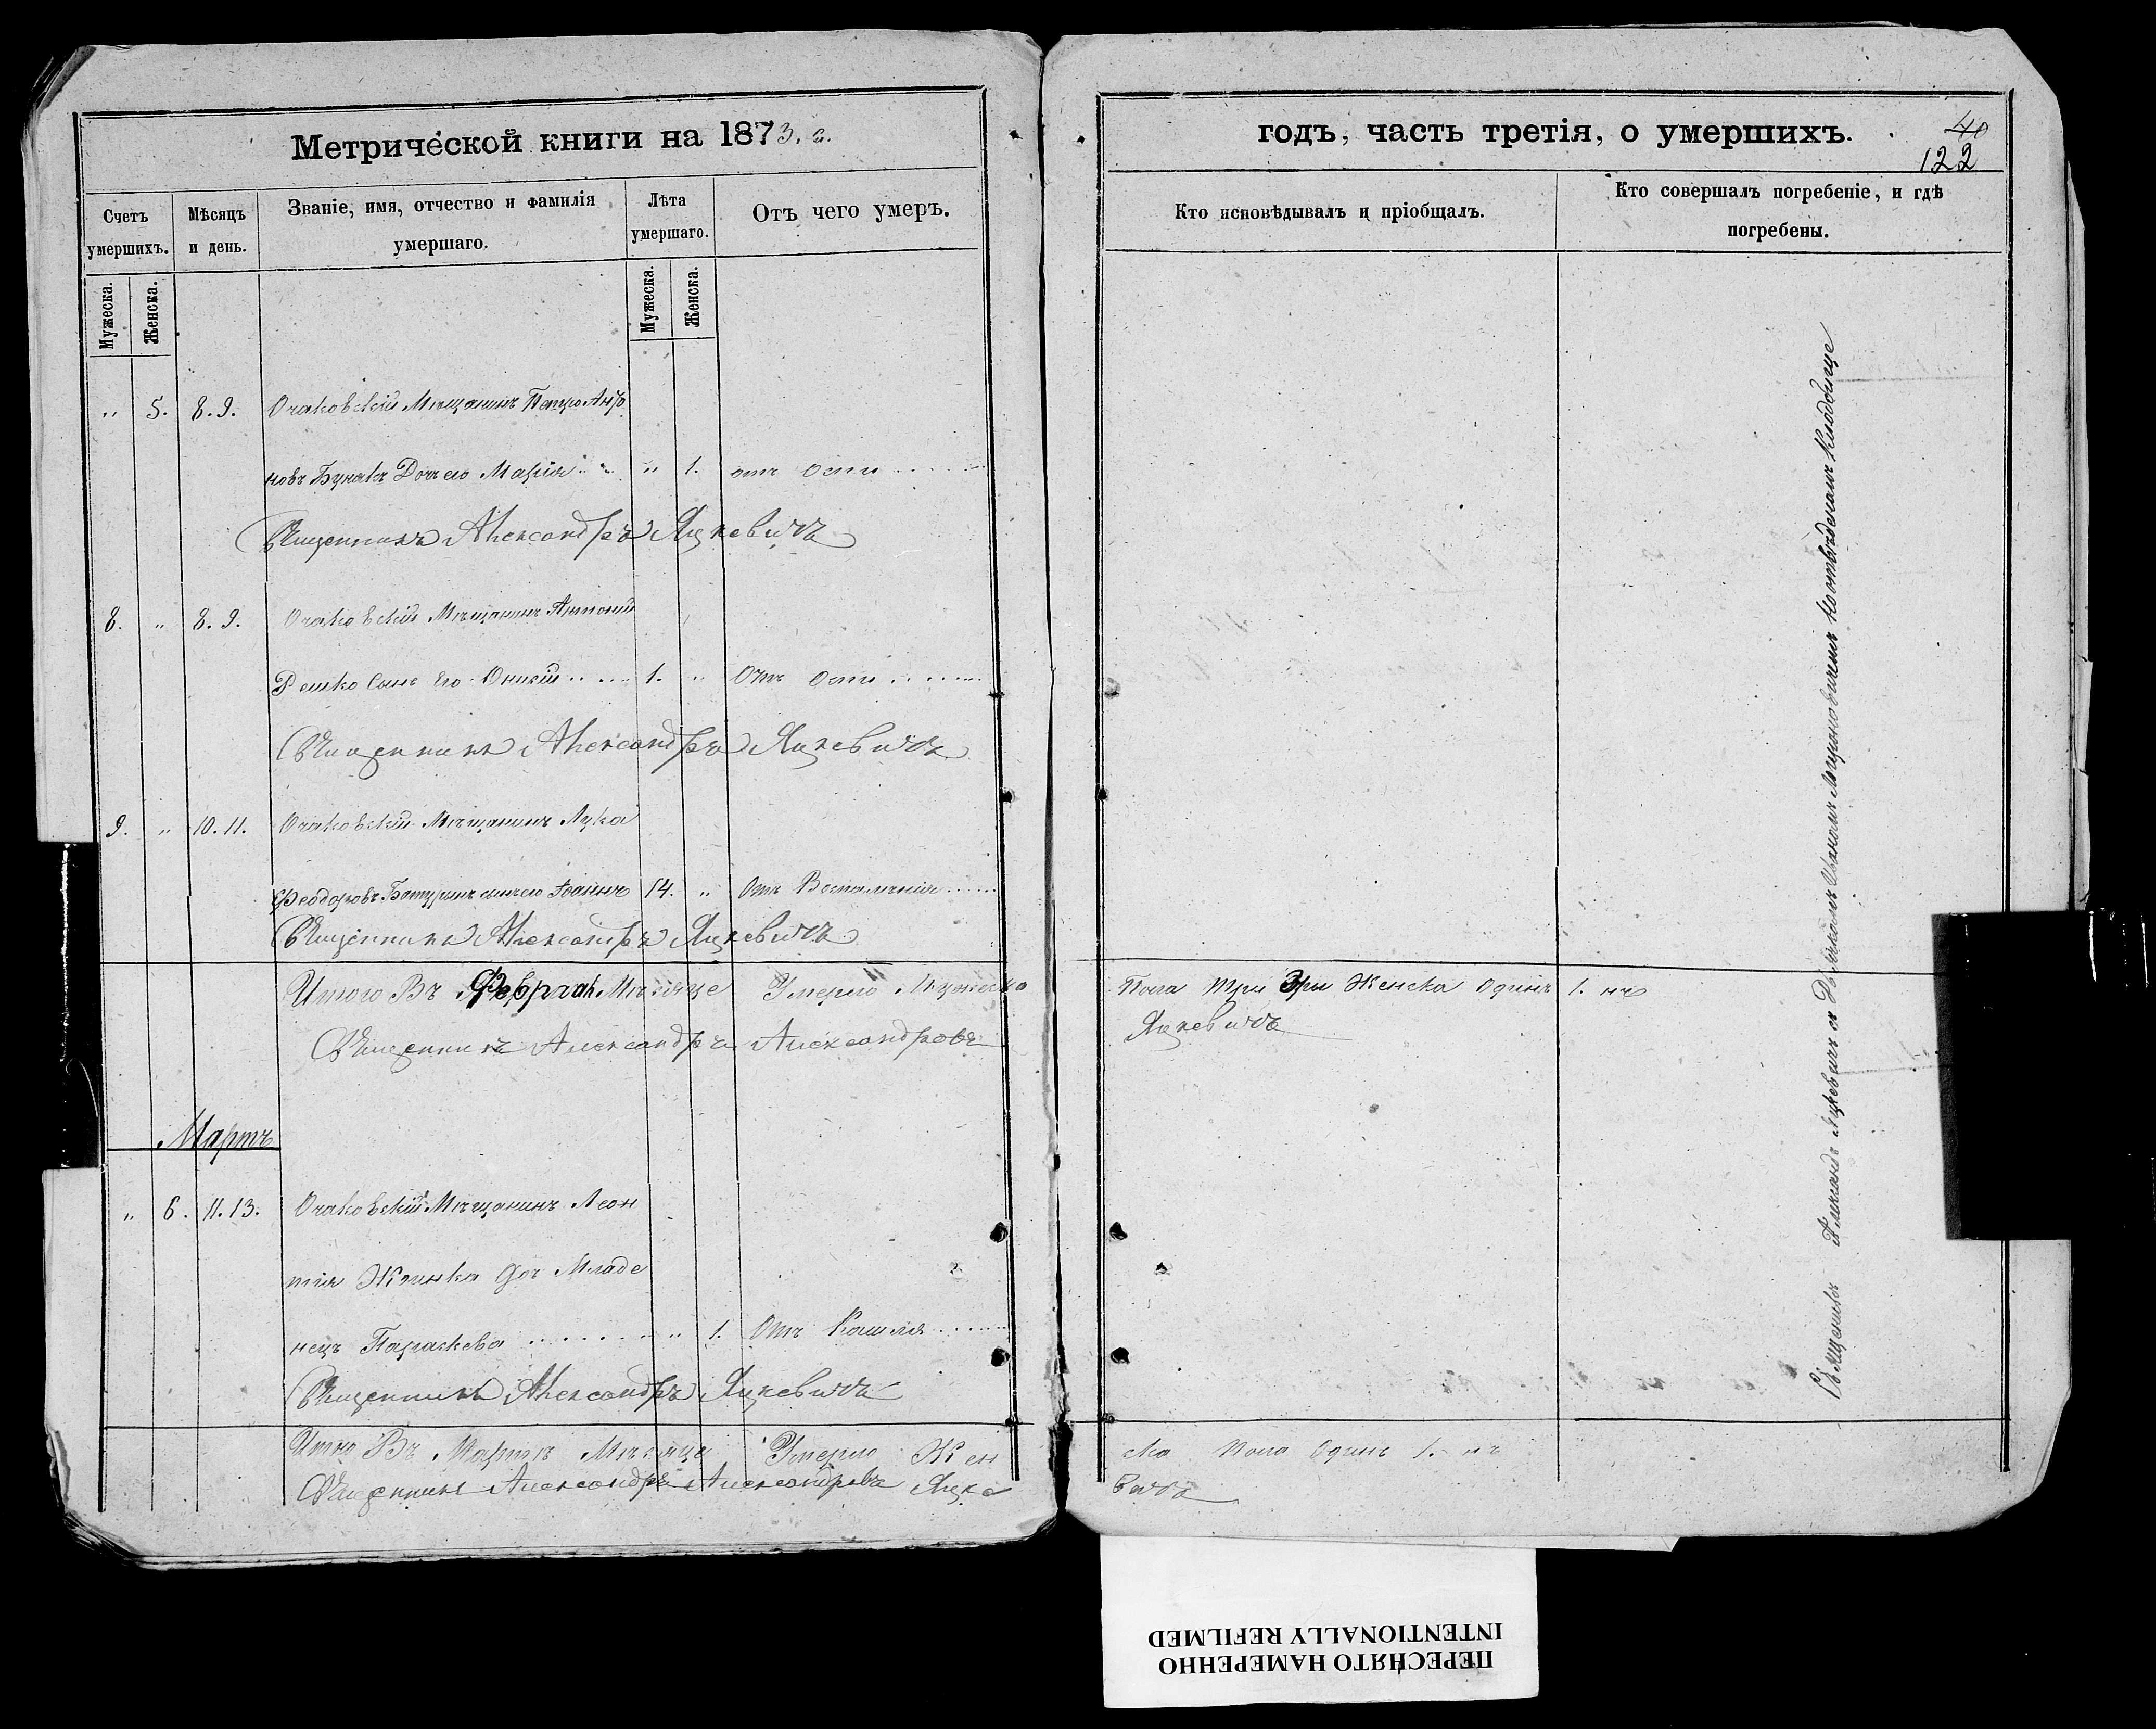 Метрической книги на 1873. г.
годъ, часть третія, о умершихъ.
40
122
Счетъ умершихъ.
Мѣсяцъ и день.
Званіе, имя, отчество и фамилія умершаго.
Лѣта умершаго.
Отъ чего умеръ.
Кто исповѣдывалъ и пріобщалъ.
Кто совершалъ погребеніе, и гдѣ погребены.
Мужеска.
Женска.
Мужеска.
Женска.
„ 5. 8. 9. Очаковскій Мѣщанинъ Петро Анто
новъ Бунакъ Доч его Марія „ 1. отъ оспи
Священникъ Александръ Яцкевичъ
8. „ 8. 9. Очаковскій Мѣщанинъ Антоній
Решко Сынъ Его Онисій 1. „ Отъ Оспи
Священникъ Александръ Яцкевичъ
9. „ 10. 11. Очаковскій Мѣщанинъ Лука
Феодоровъ Батуринъ сынъ его Іоаннъ 14. „ Отъ Воспаленія
Священникъ Александръ Яцкевичъ
Итого Въ Феврал Мѣсяце Умерло Мужеска
Пола три Женска Одинъ 1. нъ
Священникъ Александръ Александровъ
Яцкевичъ
Мартъ
„ 6. 11. 13. Очаковскій Мѣщанинъ Леон
тія Жминка доч Младе
нецъ Параскева „ 1. Отъ Кашля
Священникъ Александръ Яцкевичъ
Итно Въ Мартѣ Мѣсяце Умерло Жен
ска Пола Одинъ 1. нъ
Священникъ Александръ Александровъ Яцке
вичъ
Священникъ Александръ Яцкевичъ съ Иваномъ на отведеномъ Кладбище
ПЕРЕСНЯТО НАМЕРЕННО
INTENTIONALLY REFILMED